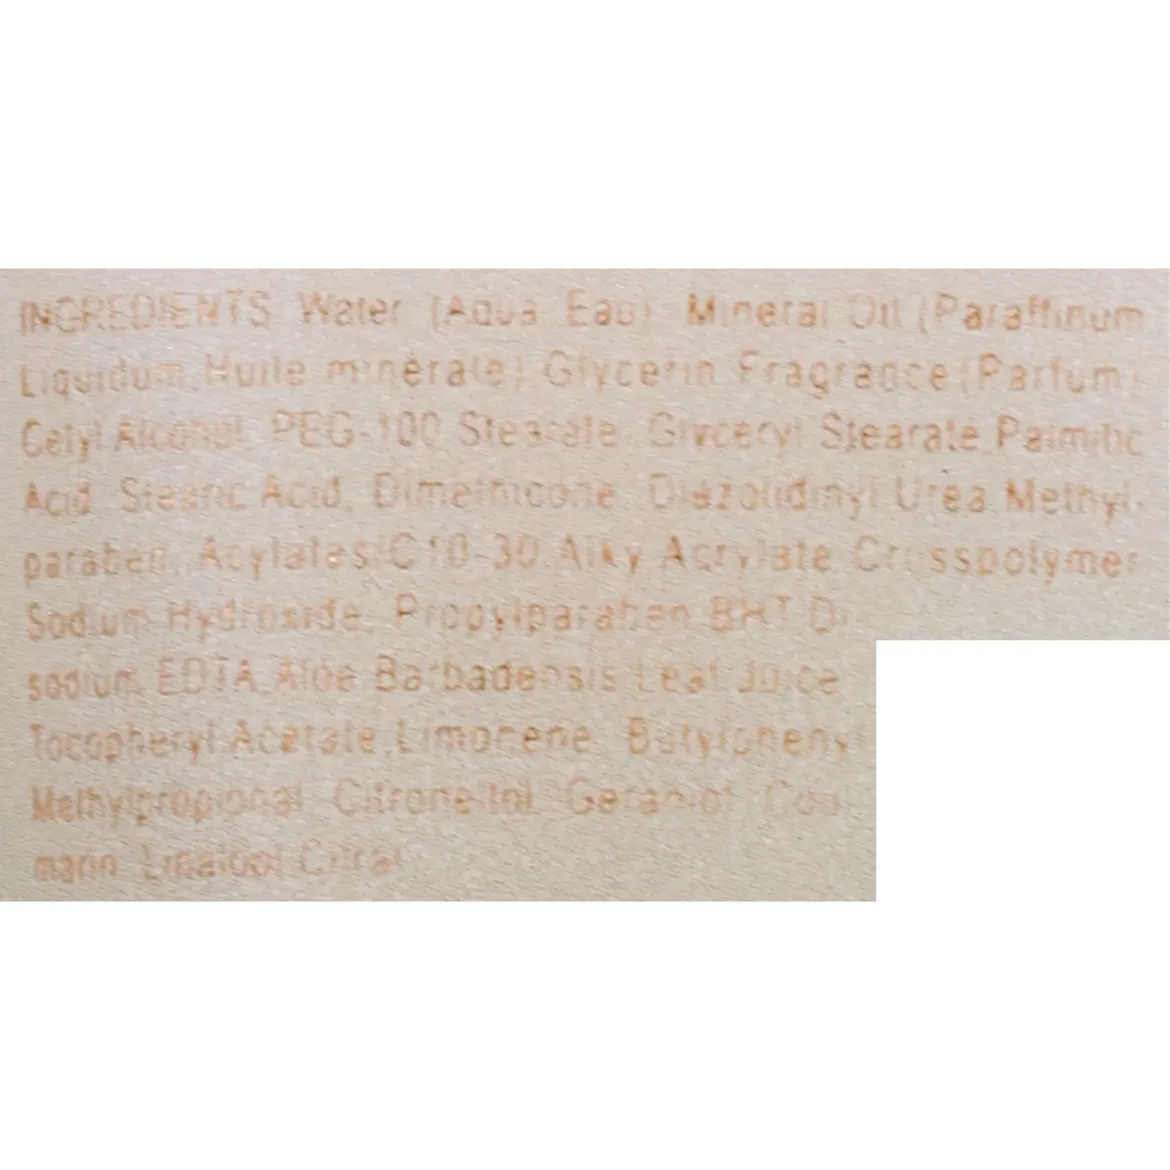 INGREDIENTS Water (Aqua Eau) Mineral Oil (Paraffinum
Liquidum, Huile minérale) Glycerin Fragrance (Parfum)
Cetyl Alcohol PEG-100 Stearate Glyceryl Stearate, Palmitic
Acid, Stearic Acid, Dimethicone Diazolidinyl Urea, Methyl-
paraben, Acylates/C10-30 Alky Acrylate Crosspolymer
Sodium Hydroxide, Propylparaben BHT Di-
sodium EDTA, Aloe Barbadensis Leaf Juice
Tocopheryl Acetate, Limonene, Butylphenyl
Methylpropional Citronellol Geraniol Cou
marin Linalool Citral